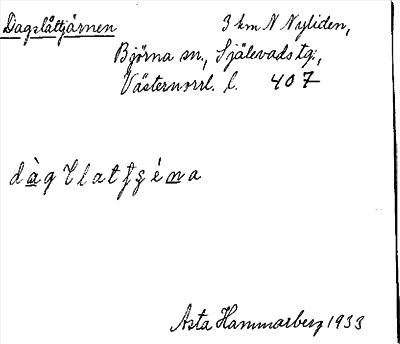 Dagslåttjärnen 3 km N Nyliden,
Björna sn., Själevads tg.,
Västernorrl. l. 407
Asta Hammarberg 1933